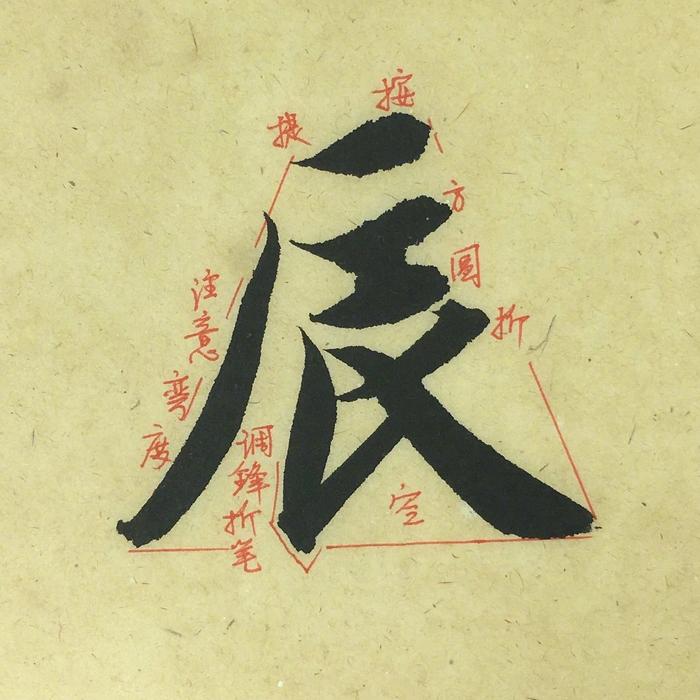 按
提
辰
方
圆
折
注意弯度
调锋折笔
空